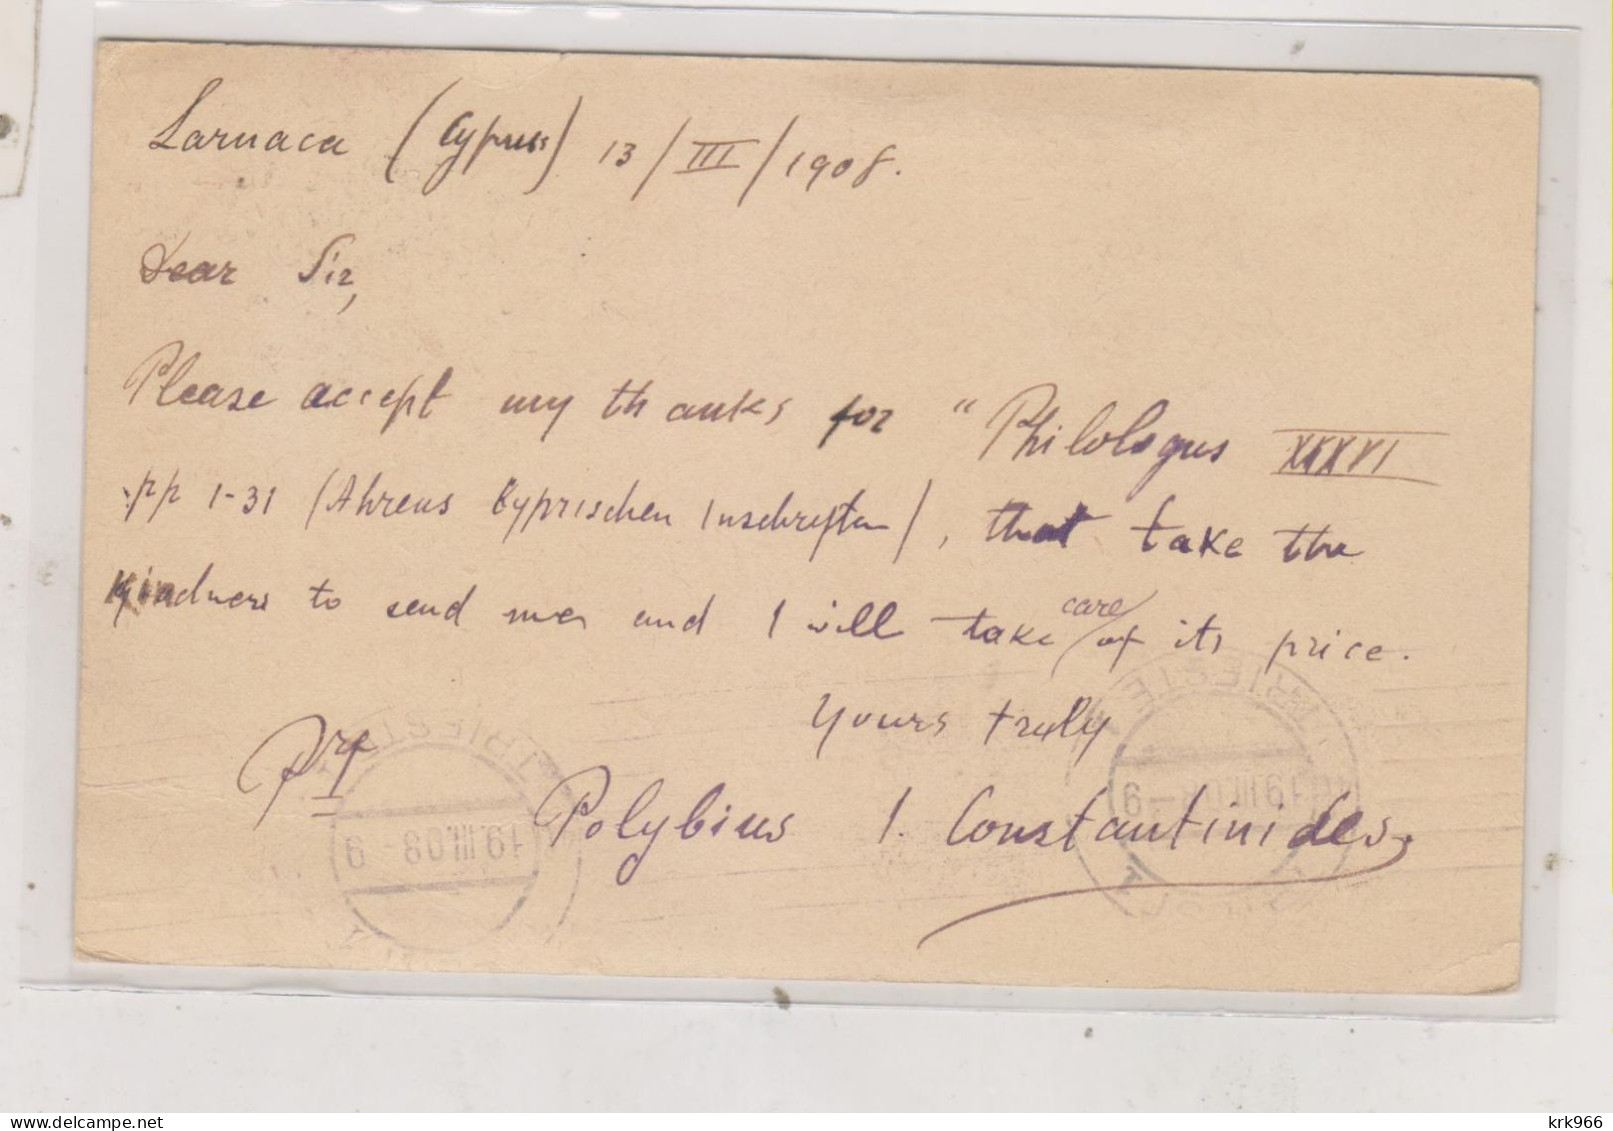 Larnaca (Cyprus) 13/III/1908.
Dear Sir,
Please accept my thanks for "Philologus XXXVI
pp 1-31 (Ahrens Cyprischen Inschriften), that take the
kindness to send me and I will take care of its price.
Yours truly
Polybius I. Constantinides
TRIESTE
19.III.08-9
TRIESTE
19.III.08-9
krk966